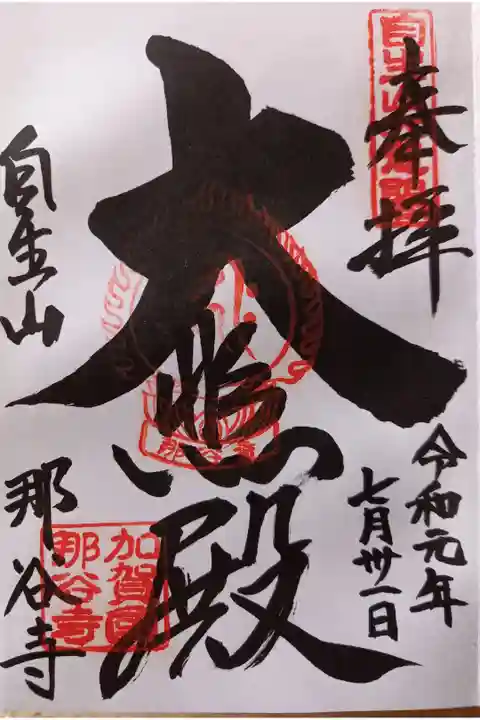 奉拝
令和元年
七月卅一日
大悲殿
自生山
那谷寺
加賀國
那谷寺
那谷寺